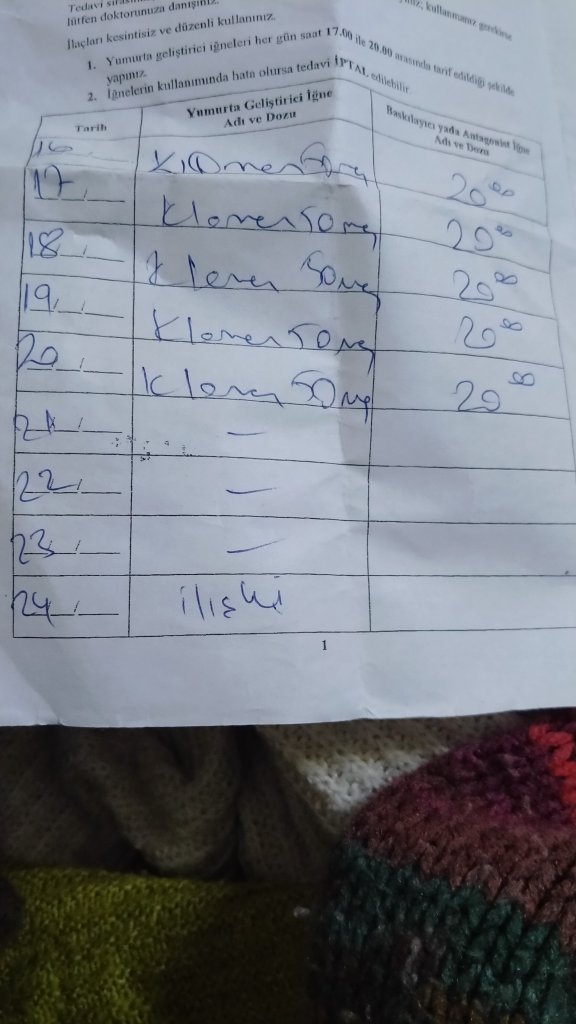 lütfen doktorunuza danışınız.
kullanmanız gerekirse
İlaçları kesintisiz ve düzenli kullanınız.
1. Yumurta geliştirici iğneleri her gün saat 17.00 ile 20.00 arasında tarif edildiği şekilde
yapınız.
2. İğnelerin kullanımında hata olursa tedavi İPTAL edilebilir.
Tarih Yumurta Geliştirici İğne Adı ve Dozu Baskılayıcı yada Antagonist İğne Adı ve Dozu
16 Klomen 50mg 20 00
17 Klomen 50mg 20 00
18 Klomen 50mg 20 00
19 Klomen 50mg 20 00
20 Klomen 50mg 20 00
21 —
22 —
23 —
24 ilişki
1